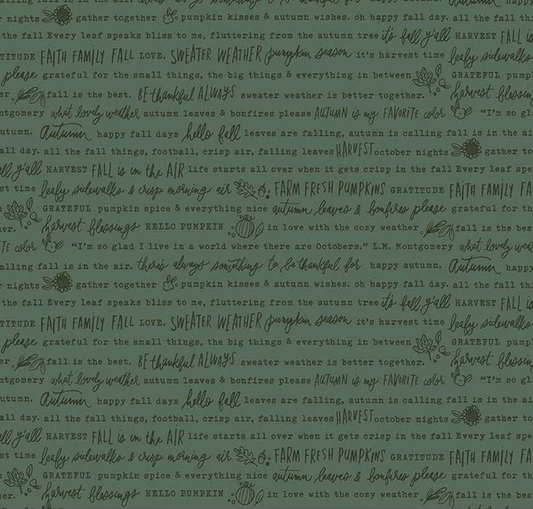 autumn leaves & bonfires please
gather together pumpkin kisses & autumn wishes. oh happy fall day. all the fall thin
the fall Every leaf speaks bliss to me, fluttering from the autumn tree it's fall y'all HARVEST FALL is
TITUDE FAITH FAMILY FALL LOVE. SWEATER WEATHER pumpkin season it's harvest time leafy sidewalks
please grateful for the small things, the big things & everything in between GRATEFUL pump
er. fall is the best. BE thankful ALWAYS sweater weather is better together. harvest blessing
tgomery what lovely weather autumn leaves & bonfires please AUTUMN is my FAVORITE color "I'm so gl
utumn. Autumn happy fall days hello fall leaves are falling, autumn is calling fall is in the air
ll day. all the fall things, football, crisp air, falling leaves HARVEST october nights gather to
all, y'all HARVEST FALL is in the AIR life starts all over when it gets crisp in the fall Every leaf spe
st time leafy sidewalks & crisp morning air FARM FRESH PUMPKINS GRATITUDE FAITH FAMILY FA
GRATEFUL pumpkin spice & everything nice autumn leaves & bonfires please grateful for th
her. harvest blessings HELLO PUMPKIN in love with the cozy weather fall is the best.
ITE color "I'm so glad I live in a world where there are Octobers." L.M. Montgomery what lovely weat
alling fall is in the air. there's always something to be thankful for happy autumn. Autumn happy
r nights gather together pumpkin kisses & autumn wishes. oh happy fall day. all the fall thin
the fall Every leaf speaks bliss to me, fluttering from the autumn tree it's fall y'all HARVEST FALL is
TITUDE FAITH FAMILY FALL LOVE. SWEATER WEATHER pumpkin season it's harvest time leafy sidewalks
please grateful for the small things, the big things & everything in between GRATEFUL pump
er. fall is the best. BE thankful ALWAYS sweater weather is better together. harvest blessing
tgomery what lovely weather autumn leaves & bonfires please AUTUMN is my FAVORITE color "I'm so gl
utumn. Autumn happy fall days hello fall leaves are falling, autumn is calling fall is in the air
ll day. all the fall things, football, crisp air, falling leaves HARVEST october nights gather to
all, y'all HARVEST FALL is in the AIR life starts all over when it gets crisp in the fall Every leaf spe
st time leafy sidewalks & crisp morning air FARM FRESH PUMPKINS GRATITUDE FAITH FAMILY FA
GRATEFUL pumpkin spice & everything nice autumn leaves & bonfires please grateful for th
her. harvest blessings HELLO PUMPKIN in love with the cozy weather fall is the best.